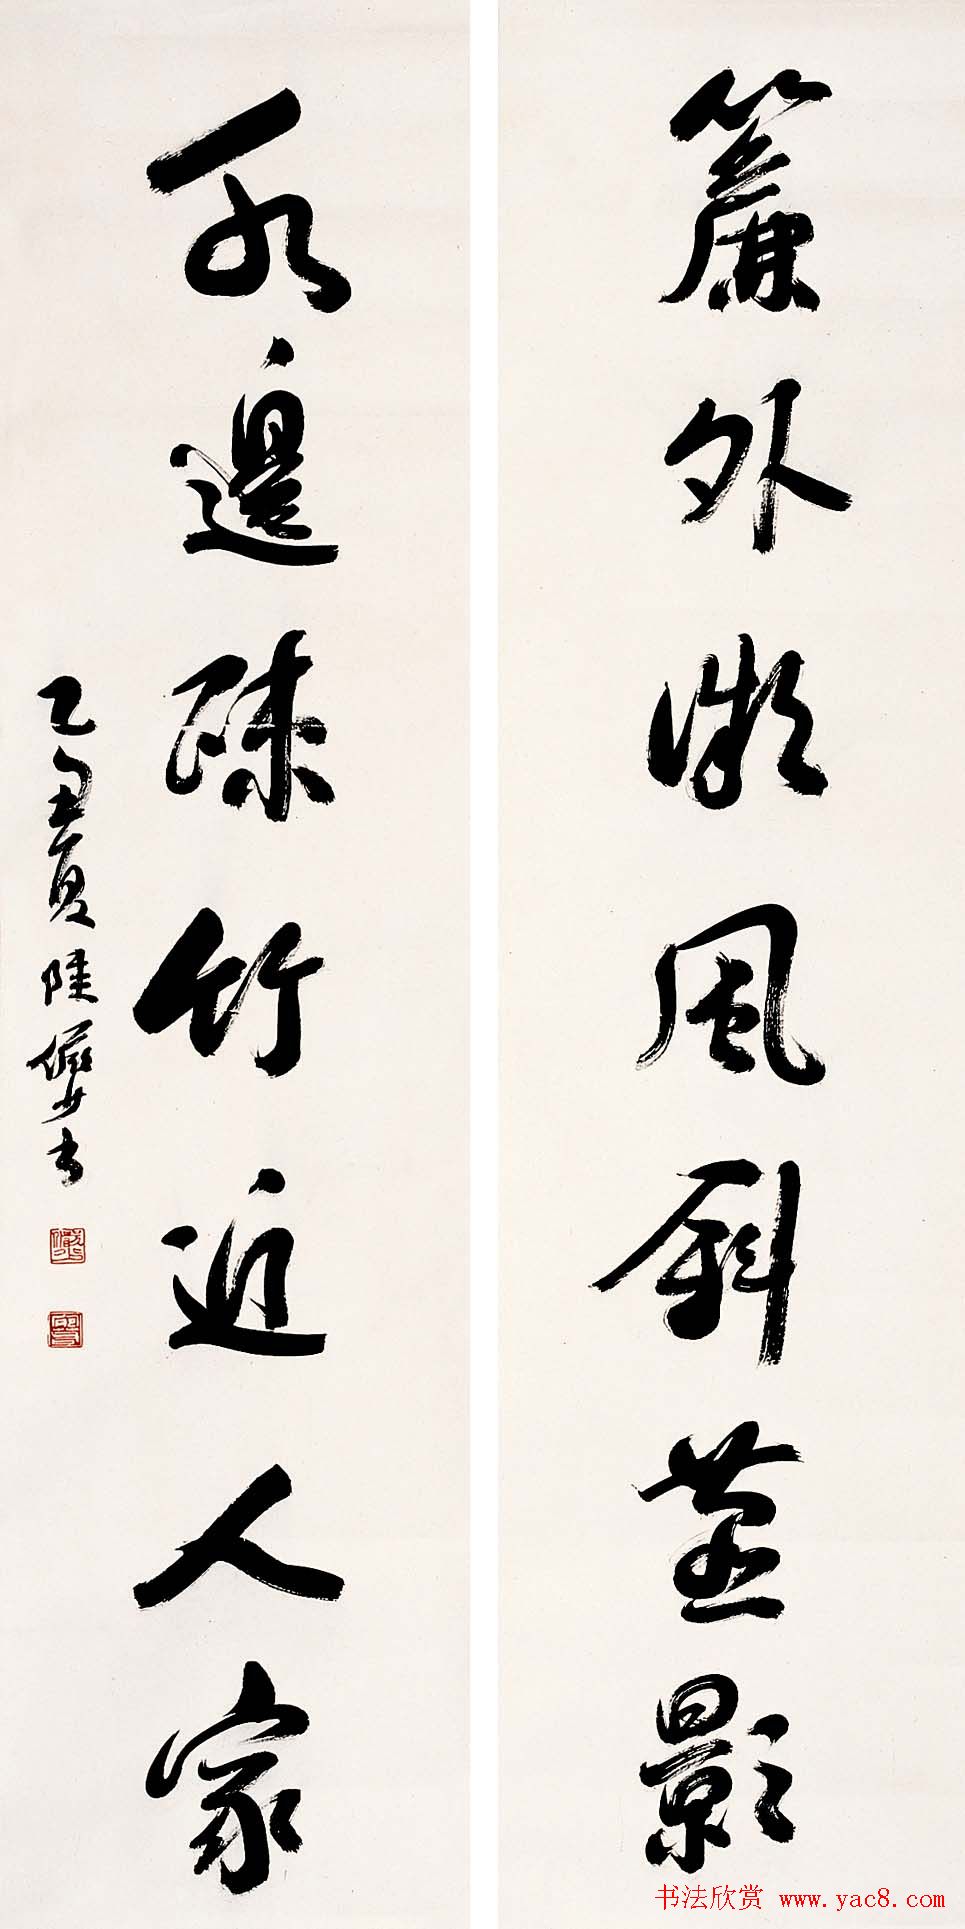 簾外微風斜燕影
水邊疎竹近人家
乙丑夏陸儼少書
书法欣赏 www.yac8.com